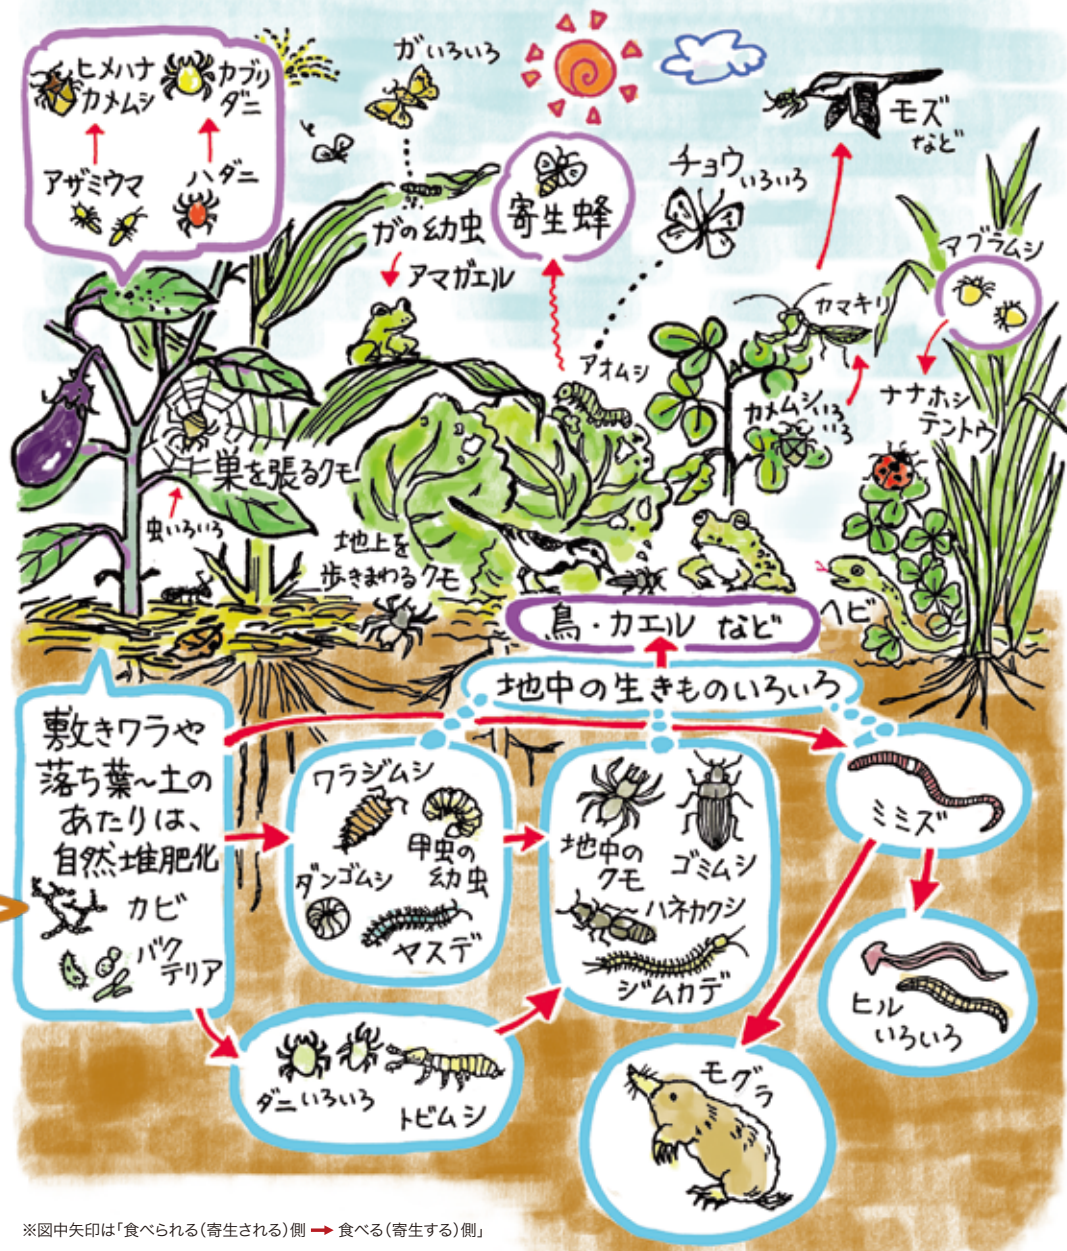 ヒメハナ
カメムシ
カブリ
ダニ
アザミウマ
ハダニ
ガいろいろ
ガの幼虫
アマガエル
寄生蜂
チョウいろいろ
アオムシ
モズ
など
カマキリ
カメムシいろいろ
アブラムシ
ナナホシ
テントウ
巣を張るクモ
虫いろいろ
地上を
歩きまわるクモ
ヘビ
鳥・カエル など
地中の生きものいろいろ
敷きワラや
落ち葉〜土の
あたりは、
自然堆肥化
カビ
バク
テリア
ワラジムシ
甲虫の
幼虫
ダンゴムシ
ヤスデ
地中の
クモ
ゴミムシ
ハネカクシ
ジムカデ
ミミズ
ヒル
いろいろ
ダニいろいろ
トビムシ
モグラ
※図中矢印は「食べられる(寄生される)側 → 食べる(寄生する)側」